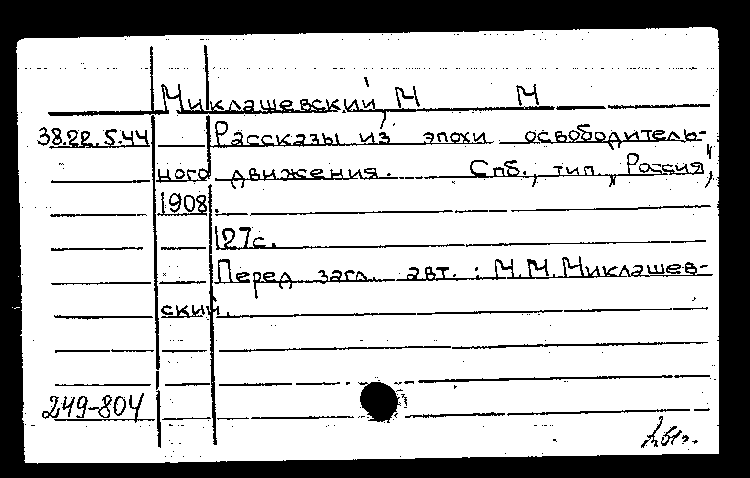 Миклашевский, М М
38.22.5.44 Рассказы из эпохи освободитель-
ного движения. Спб., тип. "Россия",
1908.
127с.
Перед загл. авт.: М.М.Миклашев-
ский.
249-804